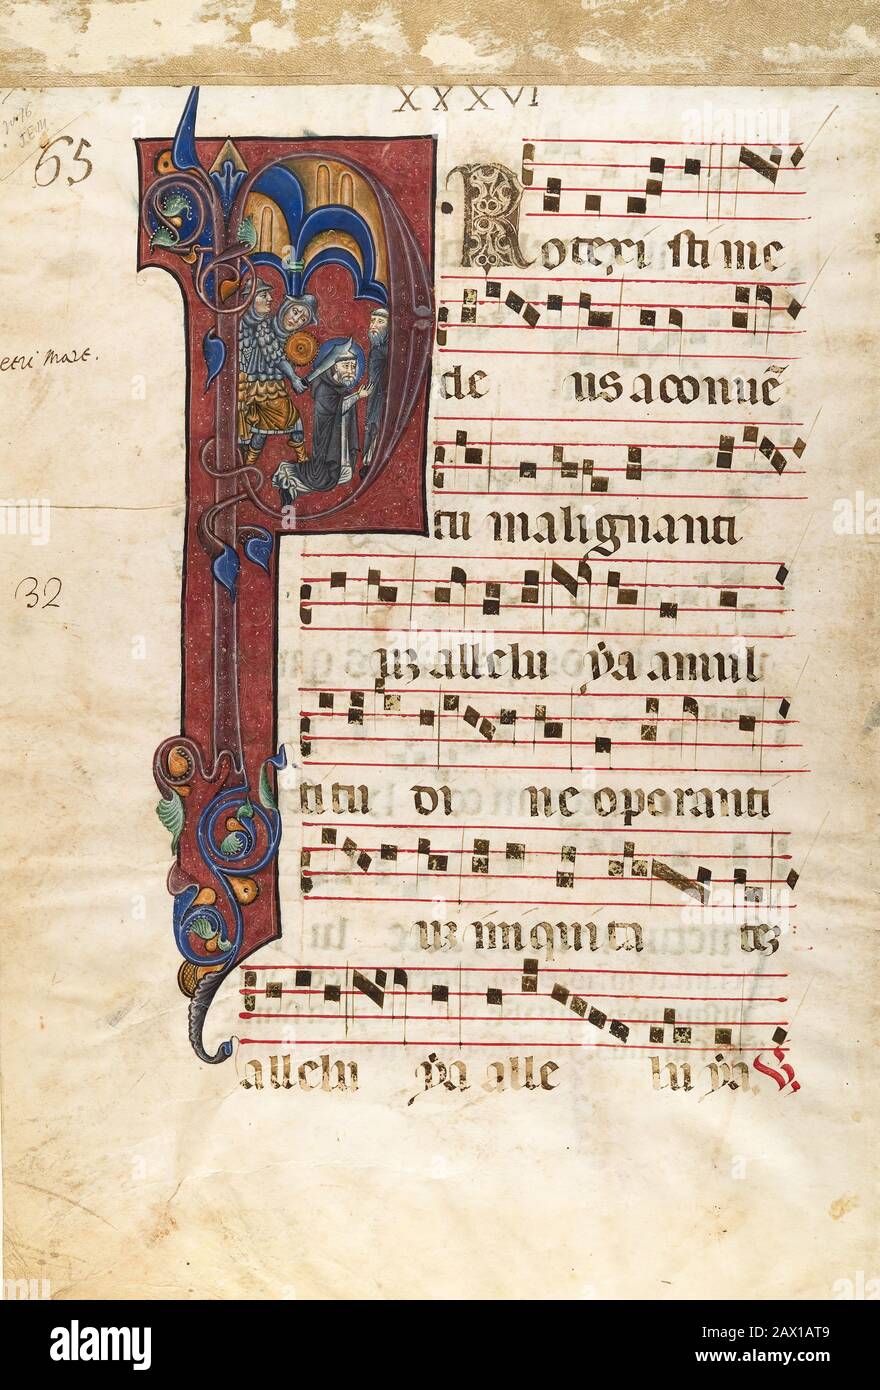 XXXVI
65
Rotexisti me
de us a conuē
tu malignanti
uz allelu ya a mul
titu di ne operanti
uz iniquita tez
allelu ya alle lu ya.
etri Mart.
32
alamy
Image ID: 2AX1AT9
www.alamy.com